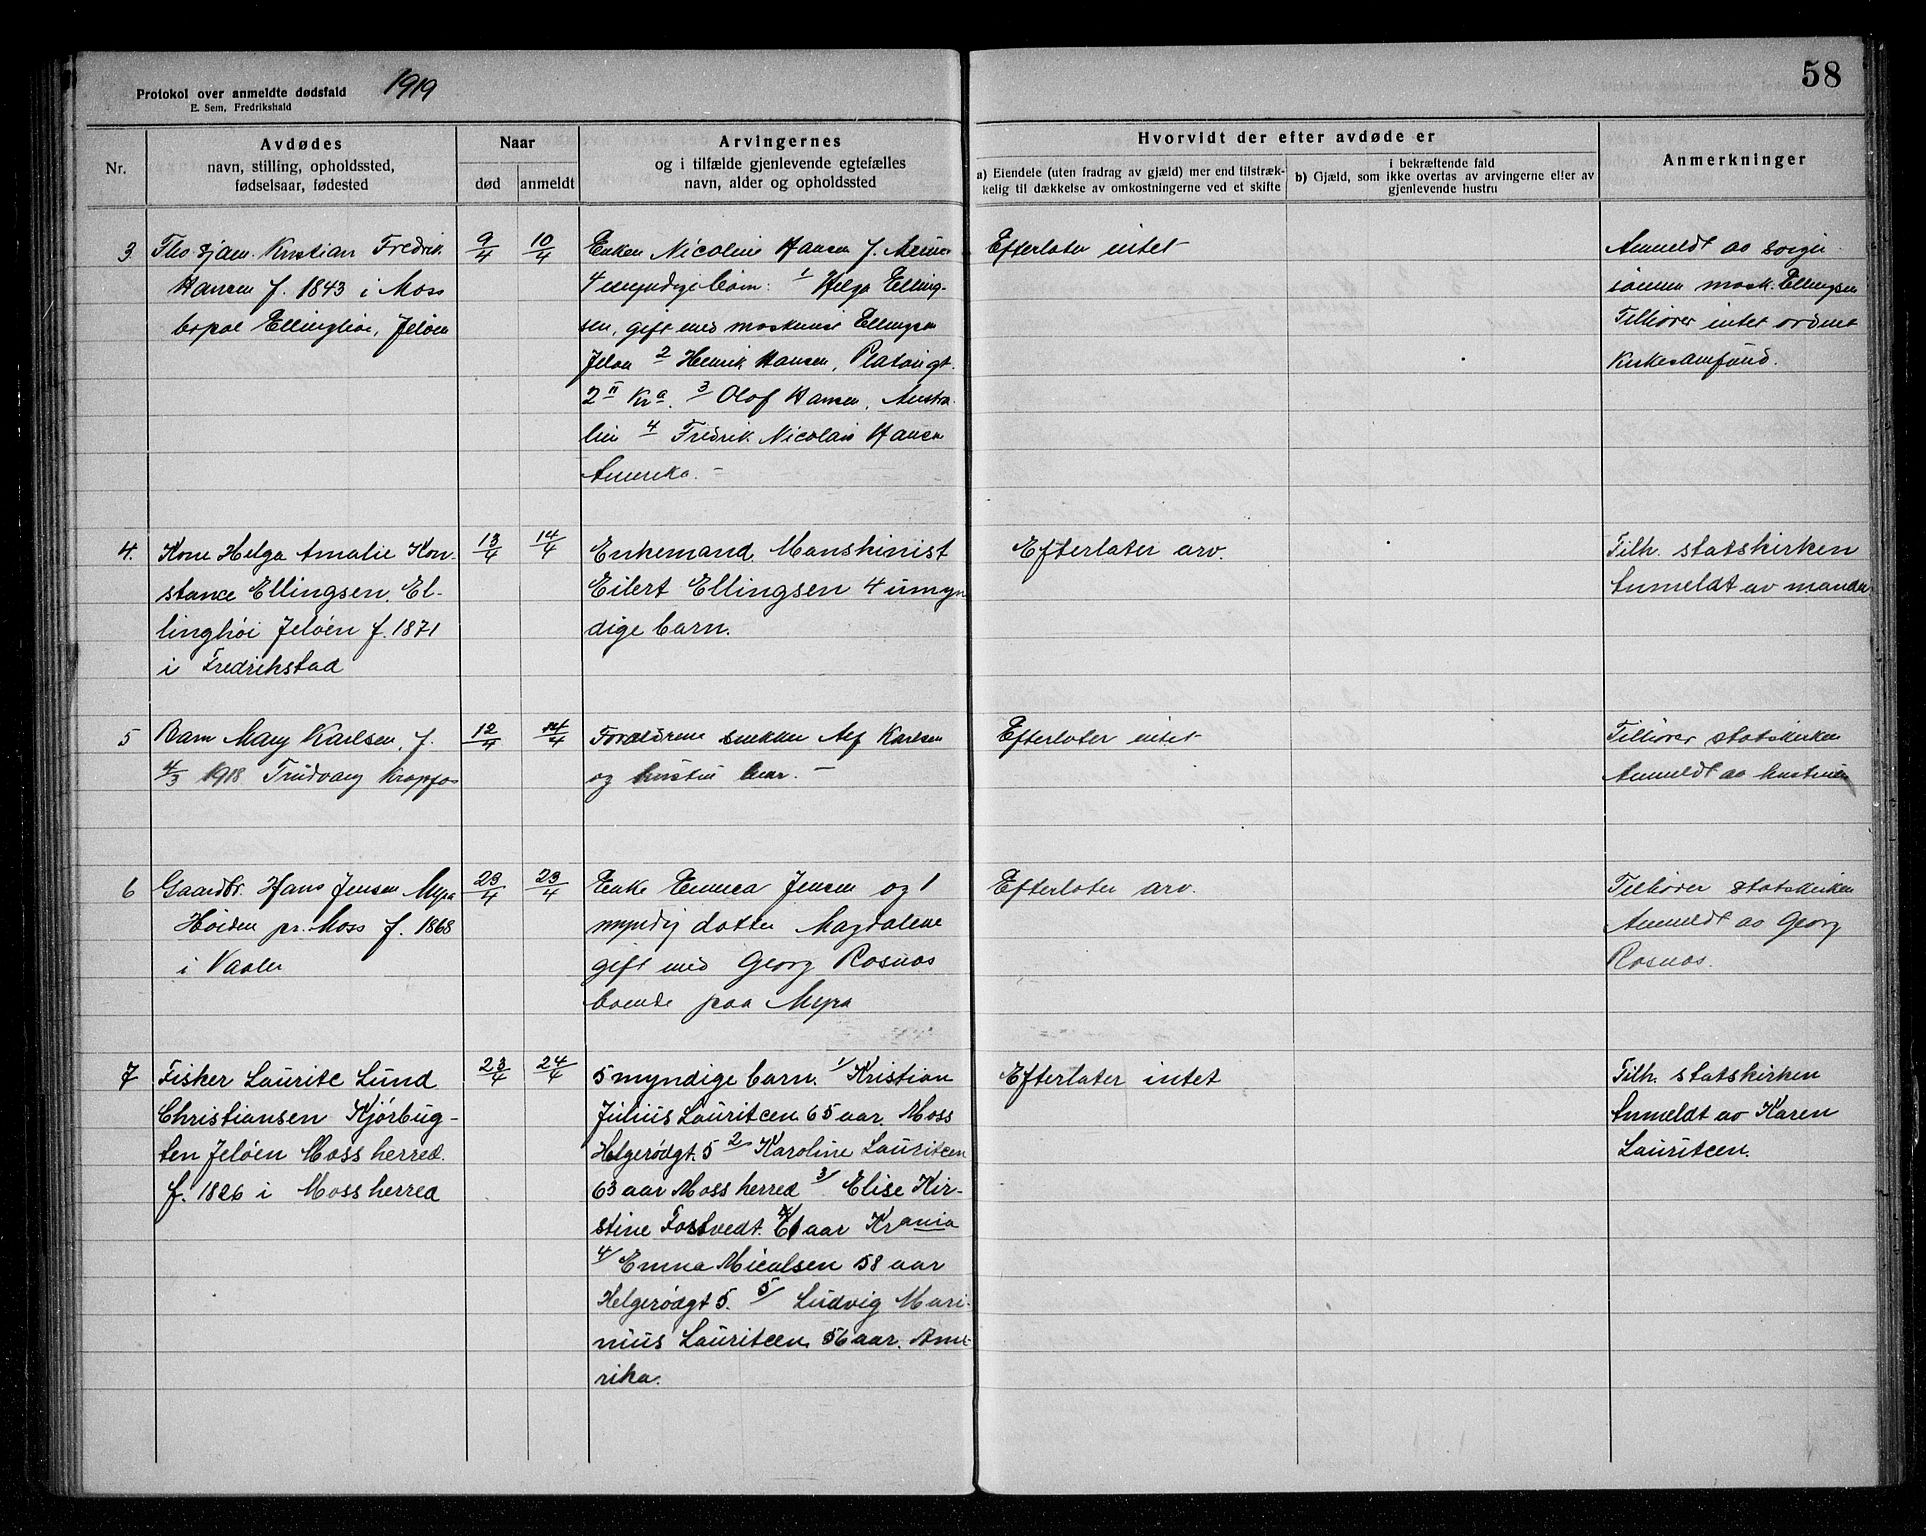 Protokol over anmeldte dødsfald 1919
E. Sem, Fredrikshald
58
Nr.
Avdødes
navn, stilling, opholdssted,
fødselsaar, fødested
Naar
død
anmeldt
Arvingernes
og i tilfælde gjenlevende egtefælles
navn, alder og opholdssted
Hvorvidt der efter avdøde er
a) Eiendele (uten fradrag av gjæld) mer end tilstræk-
kelig til dækkelse av omkostningerne ved et skifte
i bekræftende fald
b) Gjæld, som ikke overtas av arvingerne eller av
gjenlevende hustru
Anmerkninger
3
Kristian Fredrik
Hansen f. 1843 i Moss
bopæl Ellinghöi, Jelöen
9/4
10/4
Enken Nicoline Hansen f.
4 myndige börn: 1 Helga Elling-
sen, gift med maskinist Ellingsen
Jelöen 2 Henrik Hansen, Platougt.
2 II Kra. 3 Olof Hansen, Austra-
lien 4 Fredrik Nicolai Hansen
Amerika. –
Efterlater intet
Anmeldt av sviger-
sönnen mask. Ellingsen
Tilhörer intet ordnet
kirkesamfund.
4.
Kone Helga Amalie Kon-
stance Ellingsen, El-
linghöi Jelöen f. 1871
i Fredrikstad
13/4
14/4
Enkemand. Manskinist
Eilert Ellingsen 4 umyn
dige barn.
Efterlater arv.
Tilh. statskirken
Anmeldt av manden
5
Barn Mary Karlsen, f.
4/3 1918 Trudvang Krapfos
12/4
14/4
Forældrene snekker Alf Karlsen
og hustru
Efterlater intet
Tilhörer statskirken
Anmeldt av hustruen
6
Gaardbr. Hans Jensen Myra
Höiden pr. Moss f. 1868
i Vaaler
23/4
23/4
Enke Emma Jensen og 1
myndig datter Magdalene
gift med Georg Rosnæs
boende paa Myra
Efterlater arv.
Tilhörer statskirken
Anmeldt av Georg
Rosnæs.
7
Fisker Lauritz Lund
Christiansen Kjörbug-
ten Jelöen Moss herred.
f. 1826 i Moss herred
23/4
24/4
5 myndige barn. 1/ Kristian
Julius Lauritcen 65 aar Moss
Helgerödgt. 5 2/ Karoline Lauritcen
63 aar Moss herred 3/ Elise Kir-
stine Fostvedt. 61 aar Krania
4/ Emma Nicolsen 58 aar
Helgerödgt 5. 5/ Ludvig Mari-
nius Lauritcen 56 aar. Ame-
rika.
Efterlater intet
Tilh. statskirken
Anmeldt av Karen
Lauritcen.